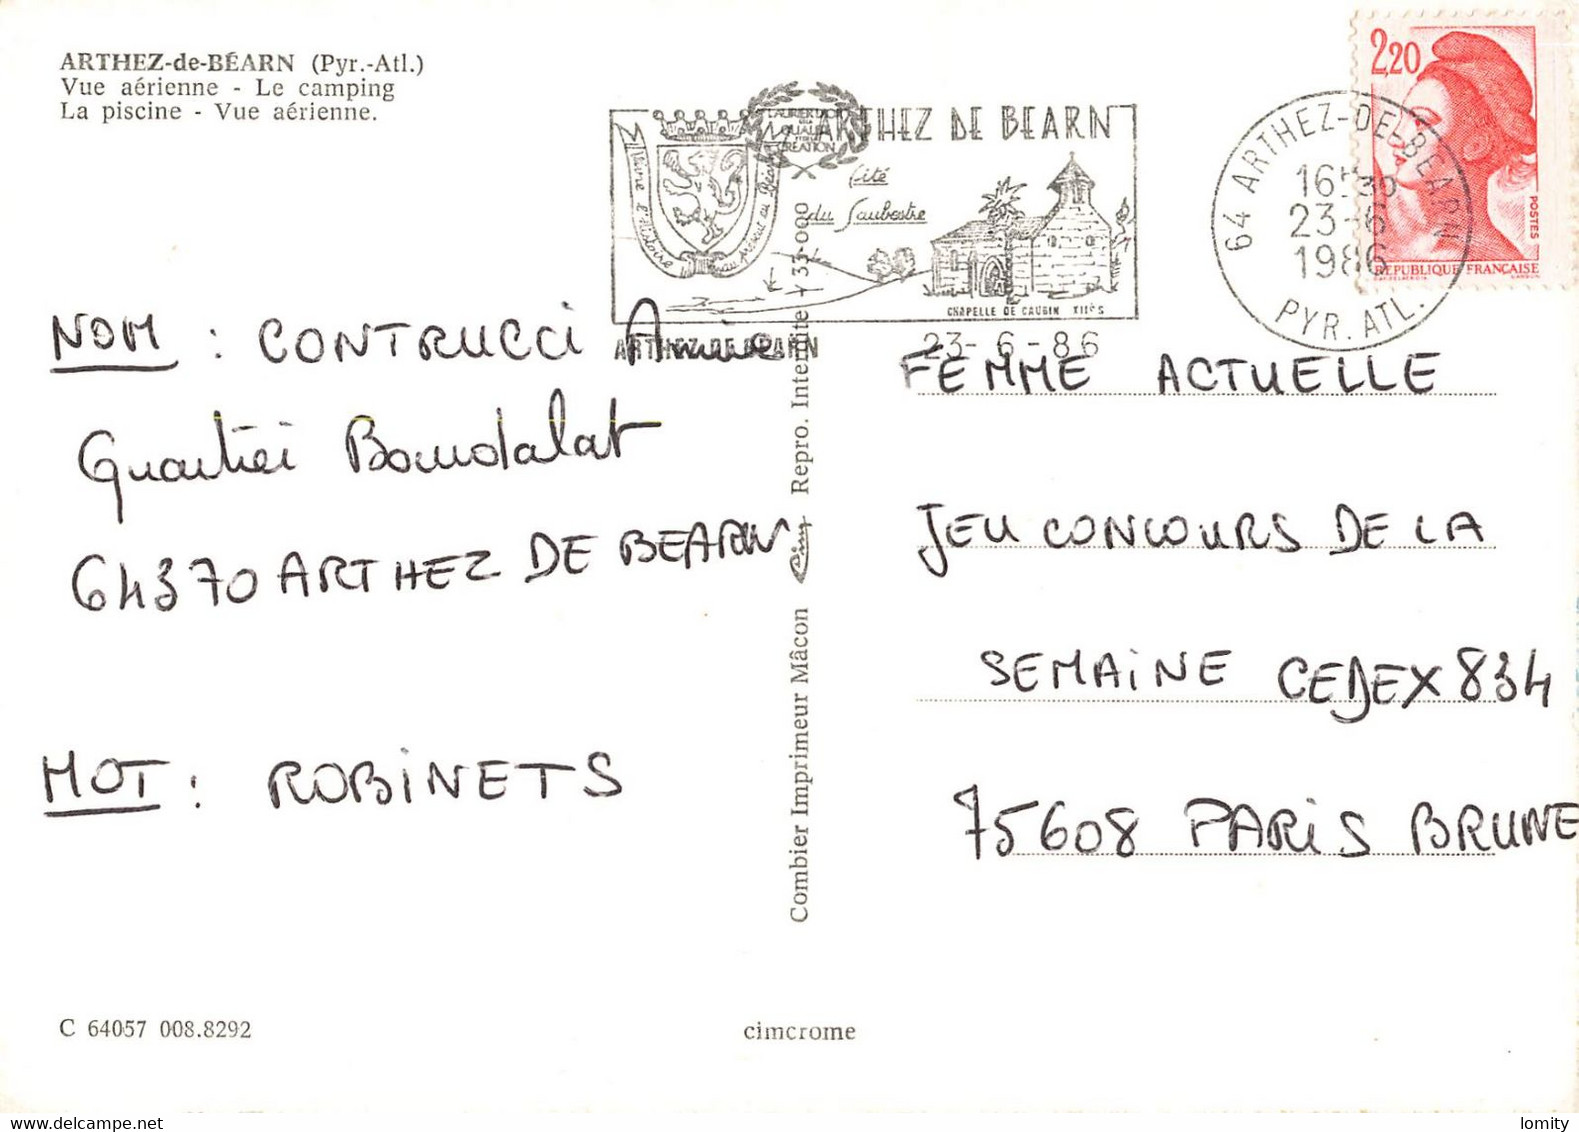 ARTHEZ-de-BÉARN (Pyr.-Atl.)
Vue aérienne - Le camping
La piscine - Vue aérienne.
ARTHEZ DE BEARN
Cité
du Soubestre
CHAPELLE DE CAUBIN XIIes
ARTHEZ-DE-BEARN
23-6-86
64 ARTHEZ-DE-BEARN
16H30
23-6
1986
PYR. ATL.
2,20
POSTES
REPUBLIQUE FRANÇAISE
NOM : CONTRUCCI Annie
Quartier Bourdalat
64370 ARTHEZ DE BEARN
MOT : ROBINETS
Combier Imprimeur Mâcon Cim Repro. Interdite - 33-000
FEMME ACTUELLE
JEU CONCOURS DE LA
SEMAINE CEDEX 834
75608 PARIS BRUNE
C 64057 008.8292
cimcrome
https://www.delcampe.net
lomity